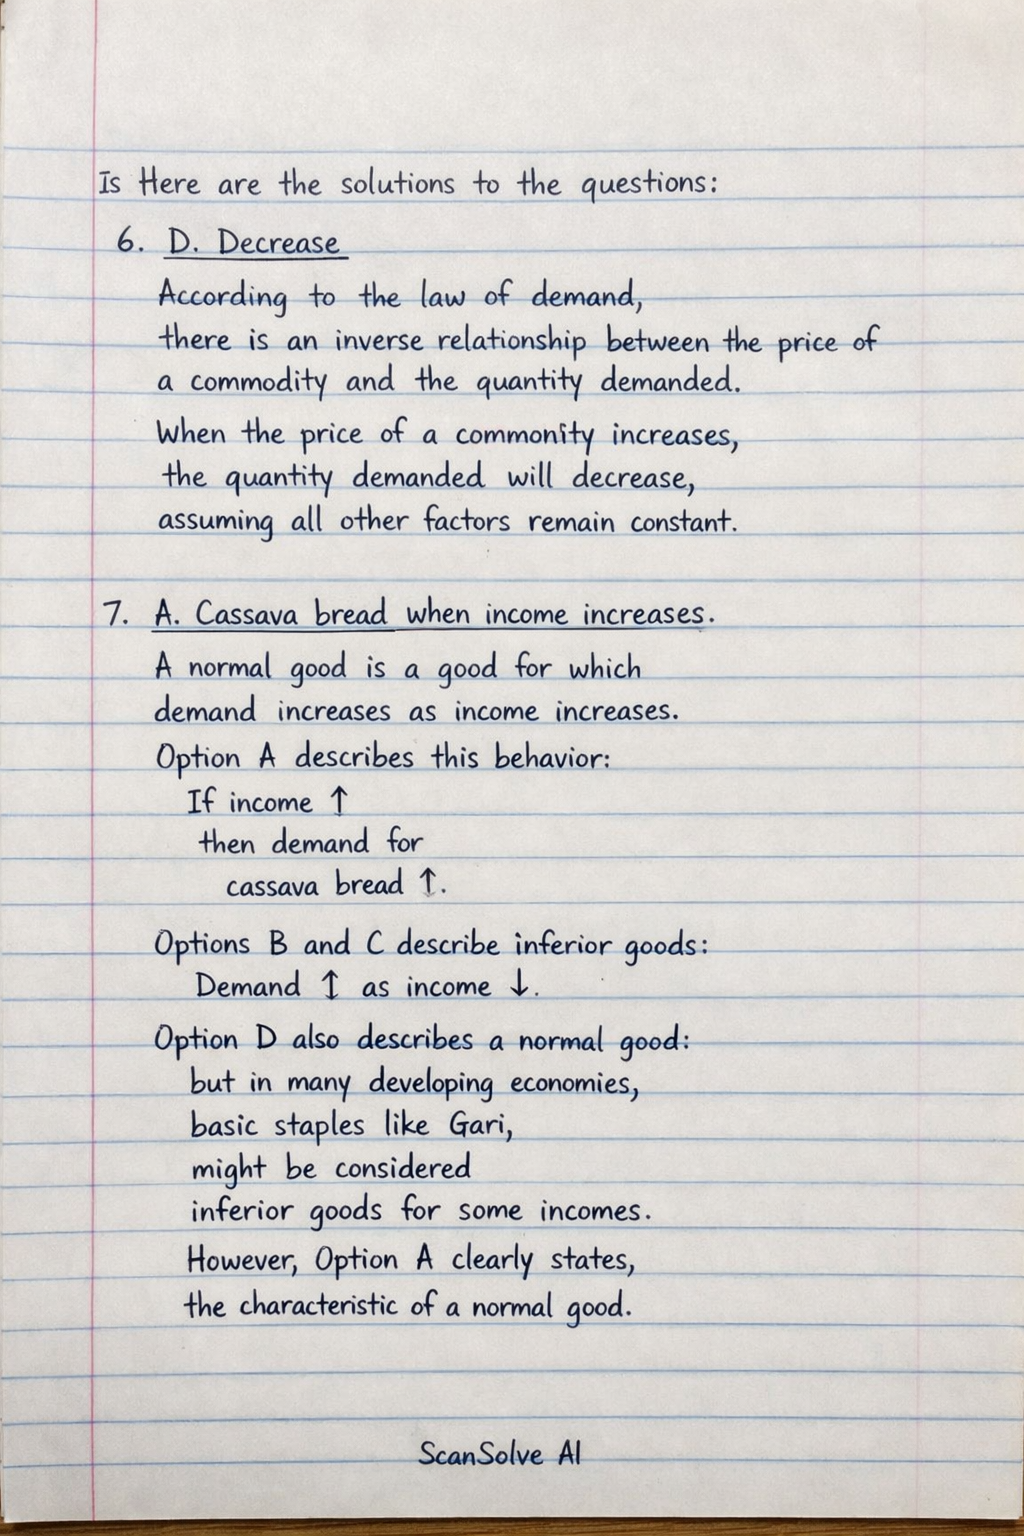 Is Here are the solutions to the questions:
6. D. Decrease
According to the law of demand,
there is an inverse relationship between the price of
a commodity and the quantity demanded.
When the price of a commonity increases,
the quantity demanded will decrease,
assuming all other factors remain constant.
7. A. Cassava bread when income increases.
A normal good is a good for which
demand increases as income increases.
Option A describes this behavior:
If income ↑
then demand for
cassava bread ↑.
Options B and C describe inferior goods:
Demand ↕ as income ↓.
Option D also describes a normal good:
but in many developing economies,
basic staples like Gari,
might be considered
inferior goods for some incomes.
However, Option A clearly states,
the characteristic of a normal good.
ScanSolve AI